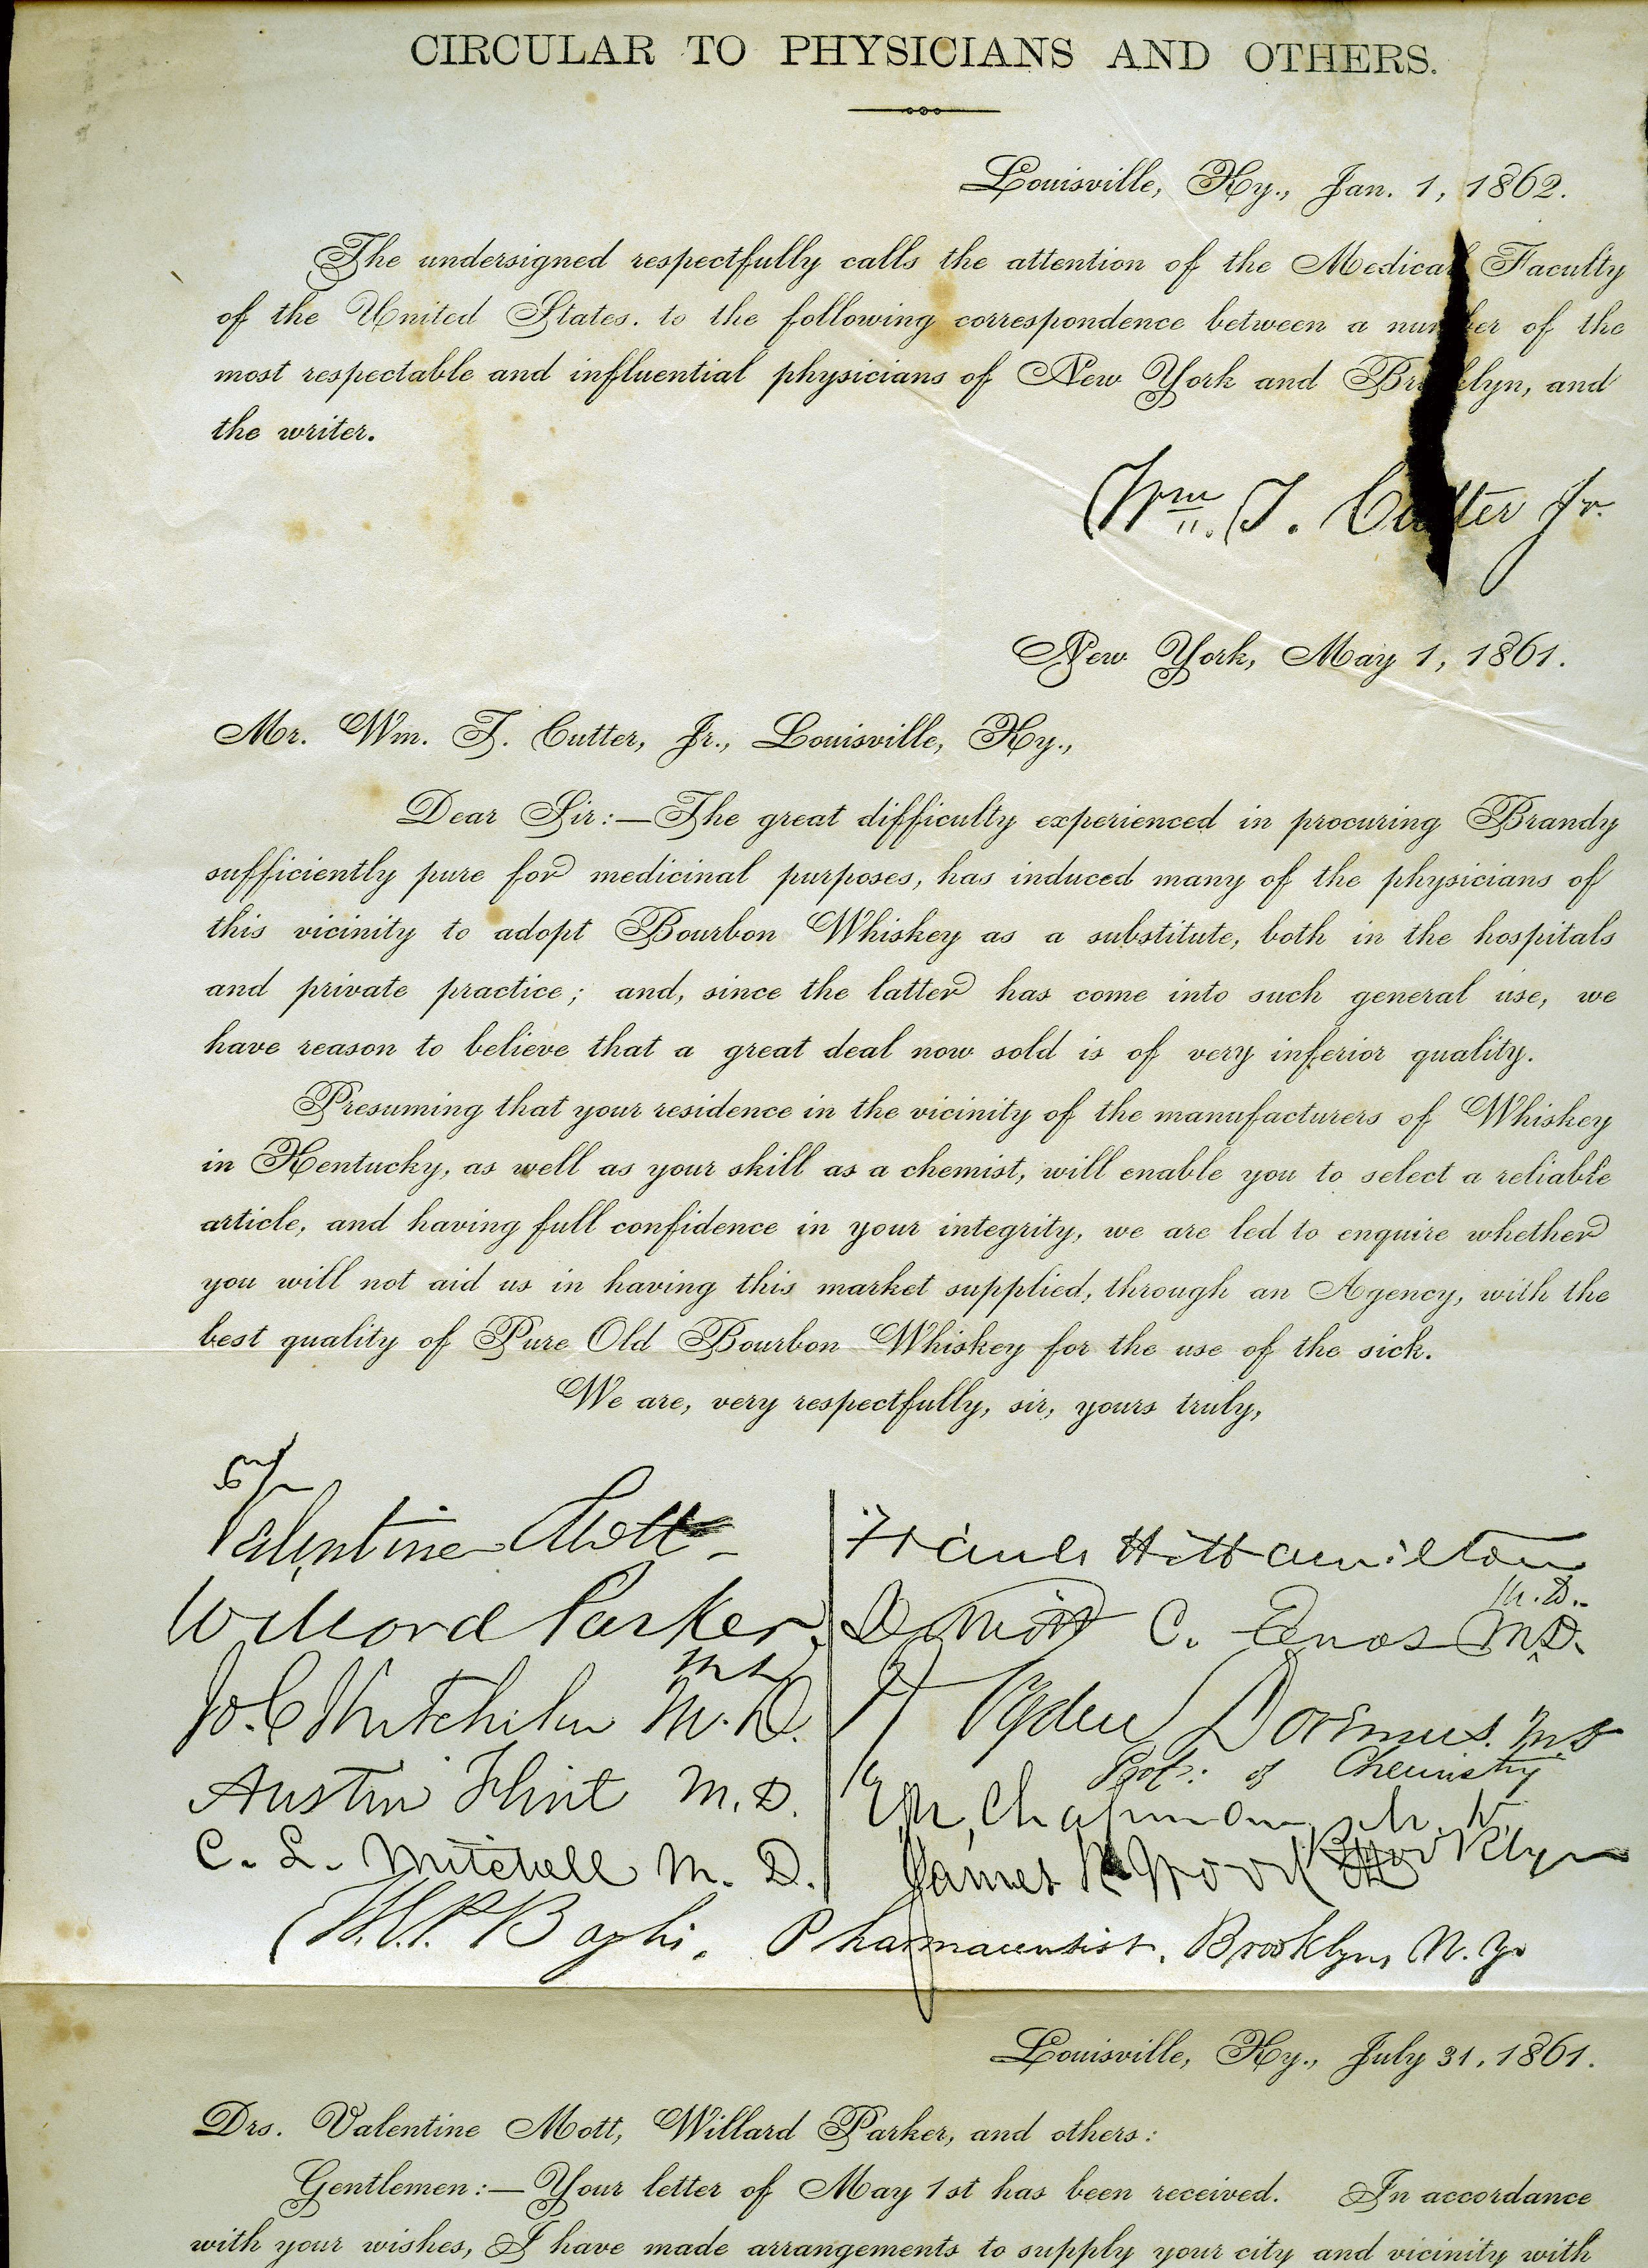 CIRCULAR TO PHYSICIANS AND OTHERS.
Louisville, Ky., Jan. 1, 1862.
The undersigned respectfully calls the attention of the Medical Faculty
of the United States. to the following correspondence between a number of the
most respectable and influential physicians of New York and Brooklyn, and
the writer.
Wm. T. Cutter Jr.
New York, May 1, 1861.
Mr. Wm. T. Cutter, Jr., Louisville, Ky.,
Dear Sir:—The great difficulty experienced in procuring Brandy
sufficiently pure for medicinal purposes, has induced many of the physicians of
this vicinity to adopt Bourbon Whiskey as a substitute, both in the hospitals
and private practice; and, since the latter has come into such general use, we
have reason to believe that a great deal now sold is of very inferior quality.
Presuming that your residence in the vicinity of the manufacturers of Whiskey
in Kentucky, as well as your skill as a chemist, will enable you to select a reliable
article, and having full confidence in your integrity, we are led to enquire whether
you will not aid us in having this market supplied, through an Agency, with the
best quality of Pure Old Bourbon Whiskey for the use of the sick.
We are, very respectfully, sir, yours truly,
Valentine Mott
Willard Parker
M.D.
Jos. C. Hutchison M.D.
Austin Flint M.D.
C. L. Mitchell M.D.
Frank H. Hamilton
M.D.
C. Enos M.D.
R. Ogden Doremus. M.D.
Prof: of Chemistry
E. N. Chapman,
Brooklyn
James R. Wood
Pharmaceutist, Brooklyn, N.Y.
Louisville, Ky., July 31, 1861.
Drs. Valentine Mott, Willard Parker, and others:
Gentlemen:—Your letter of May 1st has been received. In accordance
with your wishes, I have made arrangements to supply your city and vicinity with